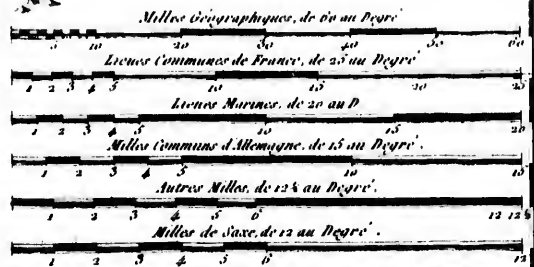 Milles Géographiques, de 60 au Degré
5 10 20 30 40 50 60
Lieues Communes de France, de 25 au Degré
1 2 3 4 5 10 15 20 25
Lieues Marines, de 20 au D.
1 2 3 4 5 10 15 20
Milles Communs d'Allemagne, de 15 au Degré.
1 2 3 4 5 10 15
Autres Milles, de 12½ au Degré.
1 2 3 4 5 6 12 12½
Milles de Saxe, de 12 au Degré.
1 2 3 4 5 6 12